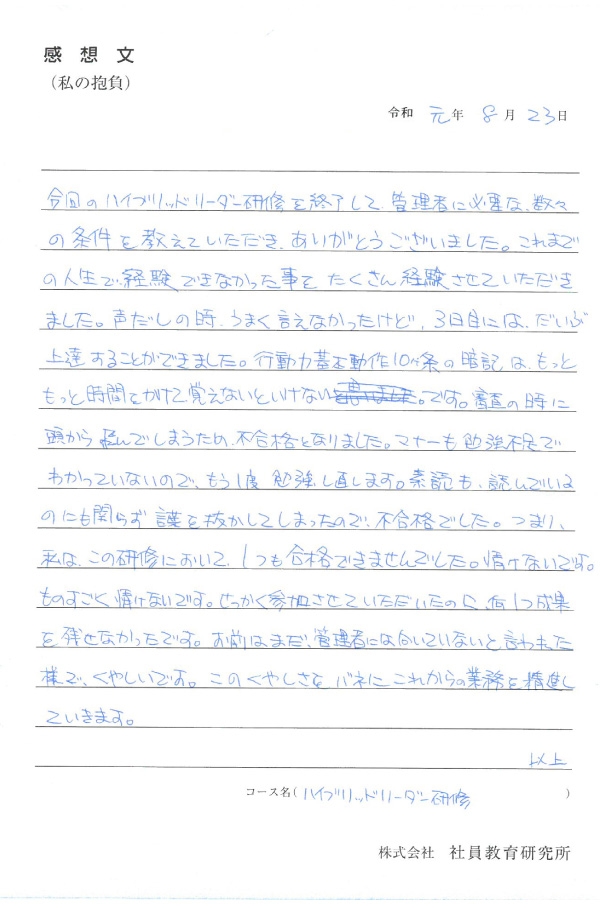 感想文
（私の抱負）
令和 元年 8月 23日
今回のハイブリッドリーダー研修を終了して、管理者に必要な、数々
の条件を教えていただき、ありがとうございました。これまで
の人生で、経験できなかった事を たくさん 経験させていただき
ました。声だしの時、うまく言えなかったけど、3日目には、だいぶ
上達することができました。行動力基本動作10ヶ条の暗記は、もっと
もっと時間をかけて覚えないといけない。です。審査の時に
頭から飛んでしまうため、不合格となりました。マナーも勉強不足で
わかっていないので、もう1度 勉強し直します。素読も、読んでいる
のにも関らず 謹を抜かしてしまったので、不合格でした。つまり、
私は、この研修において、1つも合格できませんでした。情けないです。
ものすごく情けないです。せっかく参加させていただいたのに、何1つ成果
を残せなかったです。お前はまだ、管理者には向いていないと言われた
様で、くやしいです。このくやしさを バネに、これからの業務を精進し
ていきます。
以上
コース名（ハイブリッドリーダー研修 ）
株式会社 社員教育研究所